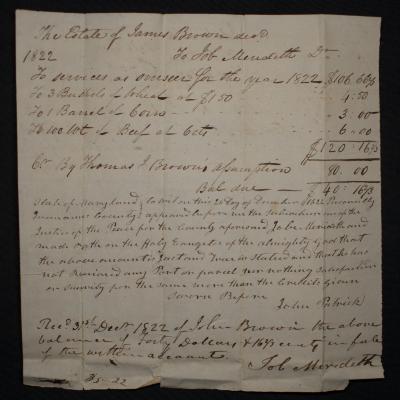 The Estate of James Brown decd
1822 To Job Merideth Dr
To services as overseer for the year 1822 $106.66⅔
To 3 Bushels of Wheat at $1.50 4.50
To 1 Barrel of Corn — 3.00
To 100 wt of Beef at 6 cts 6.00
$120.16⅔
Cr By Thomas J Brown's assumption 80.00
Bal due — $40.16⅔
State of Maryland, to wit on this day of December 1822 Personally
County appeared before me the Subscriber one of the
Justice of the Peace for the County aforesaid Job Merideth and
made oath on the Holy Evangels of the almighty God that
the above account is Just and True as Stated and that he has
not Received any Part or parcel nor nothing Satisfaction
or Surity for the same more than the Credits given
Sworn Before
John Patrick
Recd 31st Decr 1822 of John Brown the above
balance of Forty Dollars & 16⅔ cents in full
of the within account.
Job Merideth